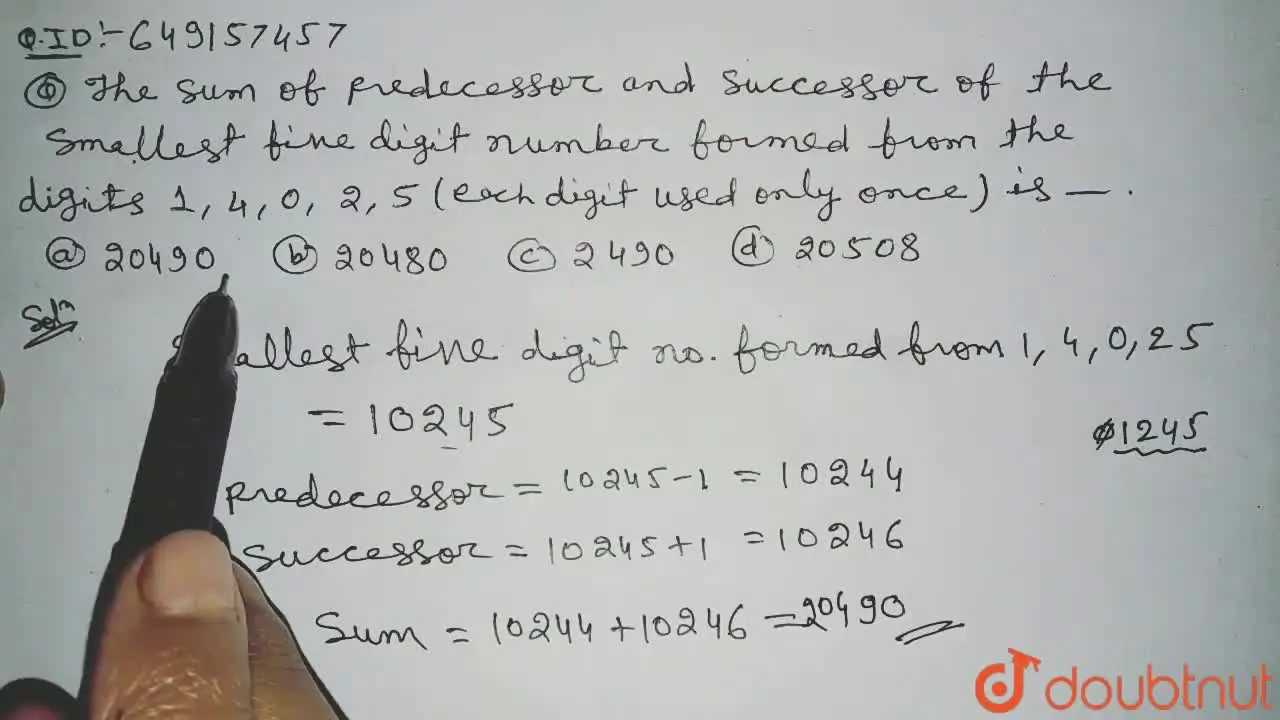 Q.ID:- 649157457
Q The sum of predecessor and successor of the
smallest five digit number formed from the
digits 1, 4, 0, 2, 5 (each digit used only once) is — .
(a) 20490 (b) 20480 (c) 2490 (d) 20508
Solⁿ
allest five digit no. formed from 1, 4, 0, 25
= 10245
01245
predecessor = 10245-1 = 10244
successor = 10245+1 = 10246
Sum = 10244+10246 = 20490
doubtnut